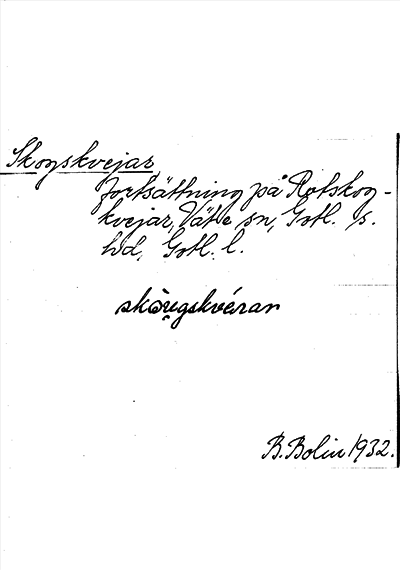 Skogskvejar,
fortsättning på Rotskog-
kvejar, Väte sn, Gotl. s.
hd, Gotl. l.
skòu̯gskvéran
B. Bolin 1932.